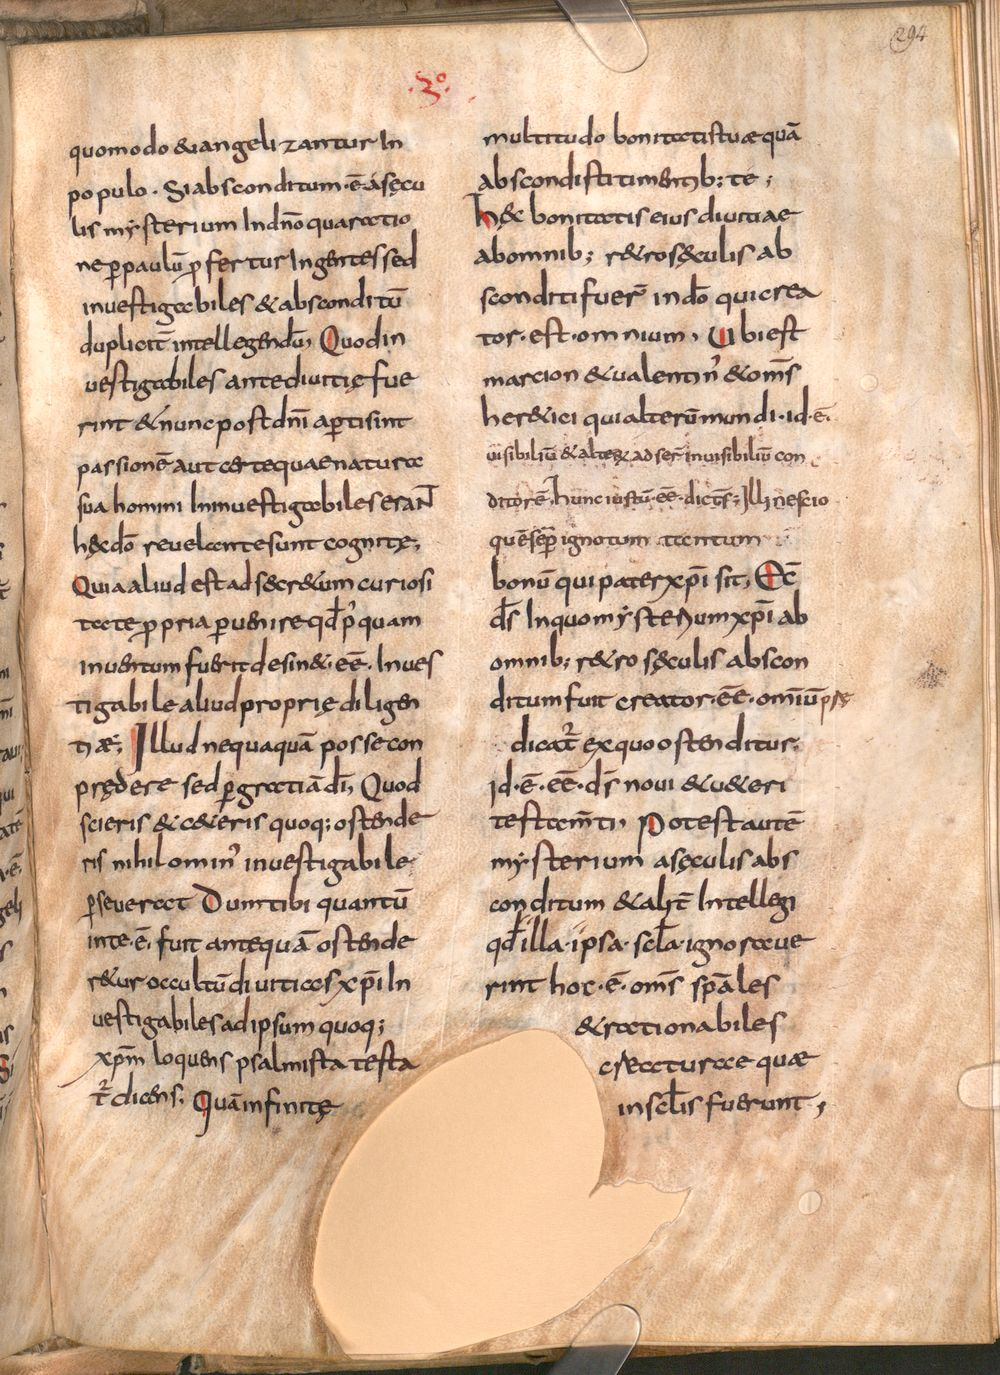 294
·3º·
quomodo &uangelizantur In
populo · Si absconditum · ē· a sęcu
lis mysterium In dn̄o qua ratio
ne p̱ paulū p̱fertur In gentes sed
inuestigabiles & absconditū
duplicit̄ intellegendū, Quod in
uestigabiles ante diuitię fue
rint & nunc post dn̄i ap̱ti sint
passionē aut certe quae natura
sua homini Ininuestigabiles erant
hęc dō reuelante sunt cognitę,
Quia aliud est ad secr&um curiosi
tate propria p̱uenire qd̄ p᾽quam
inuentum fuerit desin& · eē · Inues
tigabile aliud proprię diligen
tiæ; Illud nequaquā posse con
prędere sed p̱ gratiā dī, Quod
scieris & c&eris quoq; ostende
ris nihilomin᾽ inuestigabile
p̱seuerat Dum tibi quantū
in te · ē· fuit antequā ostende
r&ur occultū diuitias xp̄i In
uestigabiles ad ipsum quoq;
xp̄m loquens psalmista testa
t̄ dicens; Quā infinitę
multitudo bonitatis tuæ quā
abscondisti timentib; te;
h&ę bonitatis eius diuitiae
ab omnib; r&ro sęculis ab
sconditi fuer̄ in dō qui crea
tor · est · omnium, Ubi est
marcion & ualentin᾽ & om̄s
her&ici qui alterū mundi · id · ē·
uisibiliū & alter ad ser̄ inuisibiliū con
ditorē, hunc iustū · eē · dicts̄; Illi nescio
quē sep̱ ignotum tantum
bonū qui pater xp̄i sit, Eccē
ds̄ In quo mysterium xp̄i ab
omnib; r&ro sęculis abscon
ditum fuit creator · eē · omniū ipse
dicat̄ ex quo ostenditur,
id · ē · eē · ds̄ noui & u&eri
testam̄ti, Potest autē
mysterium a sęculis abs
conditum & alit̄ Intellegi
qd̄ illa · ipsa · scl̄a · ignoraue
rint hoc · ē · om̄s sp̄ales
& rationabiles
creaturae quæ
in scl̄is fuerunt,